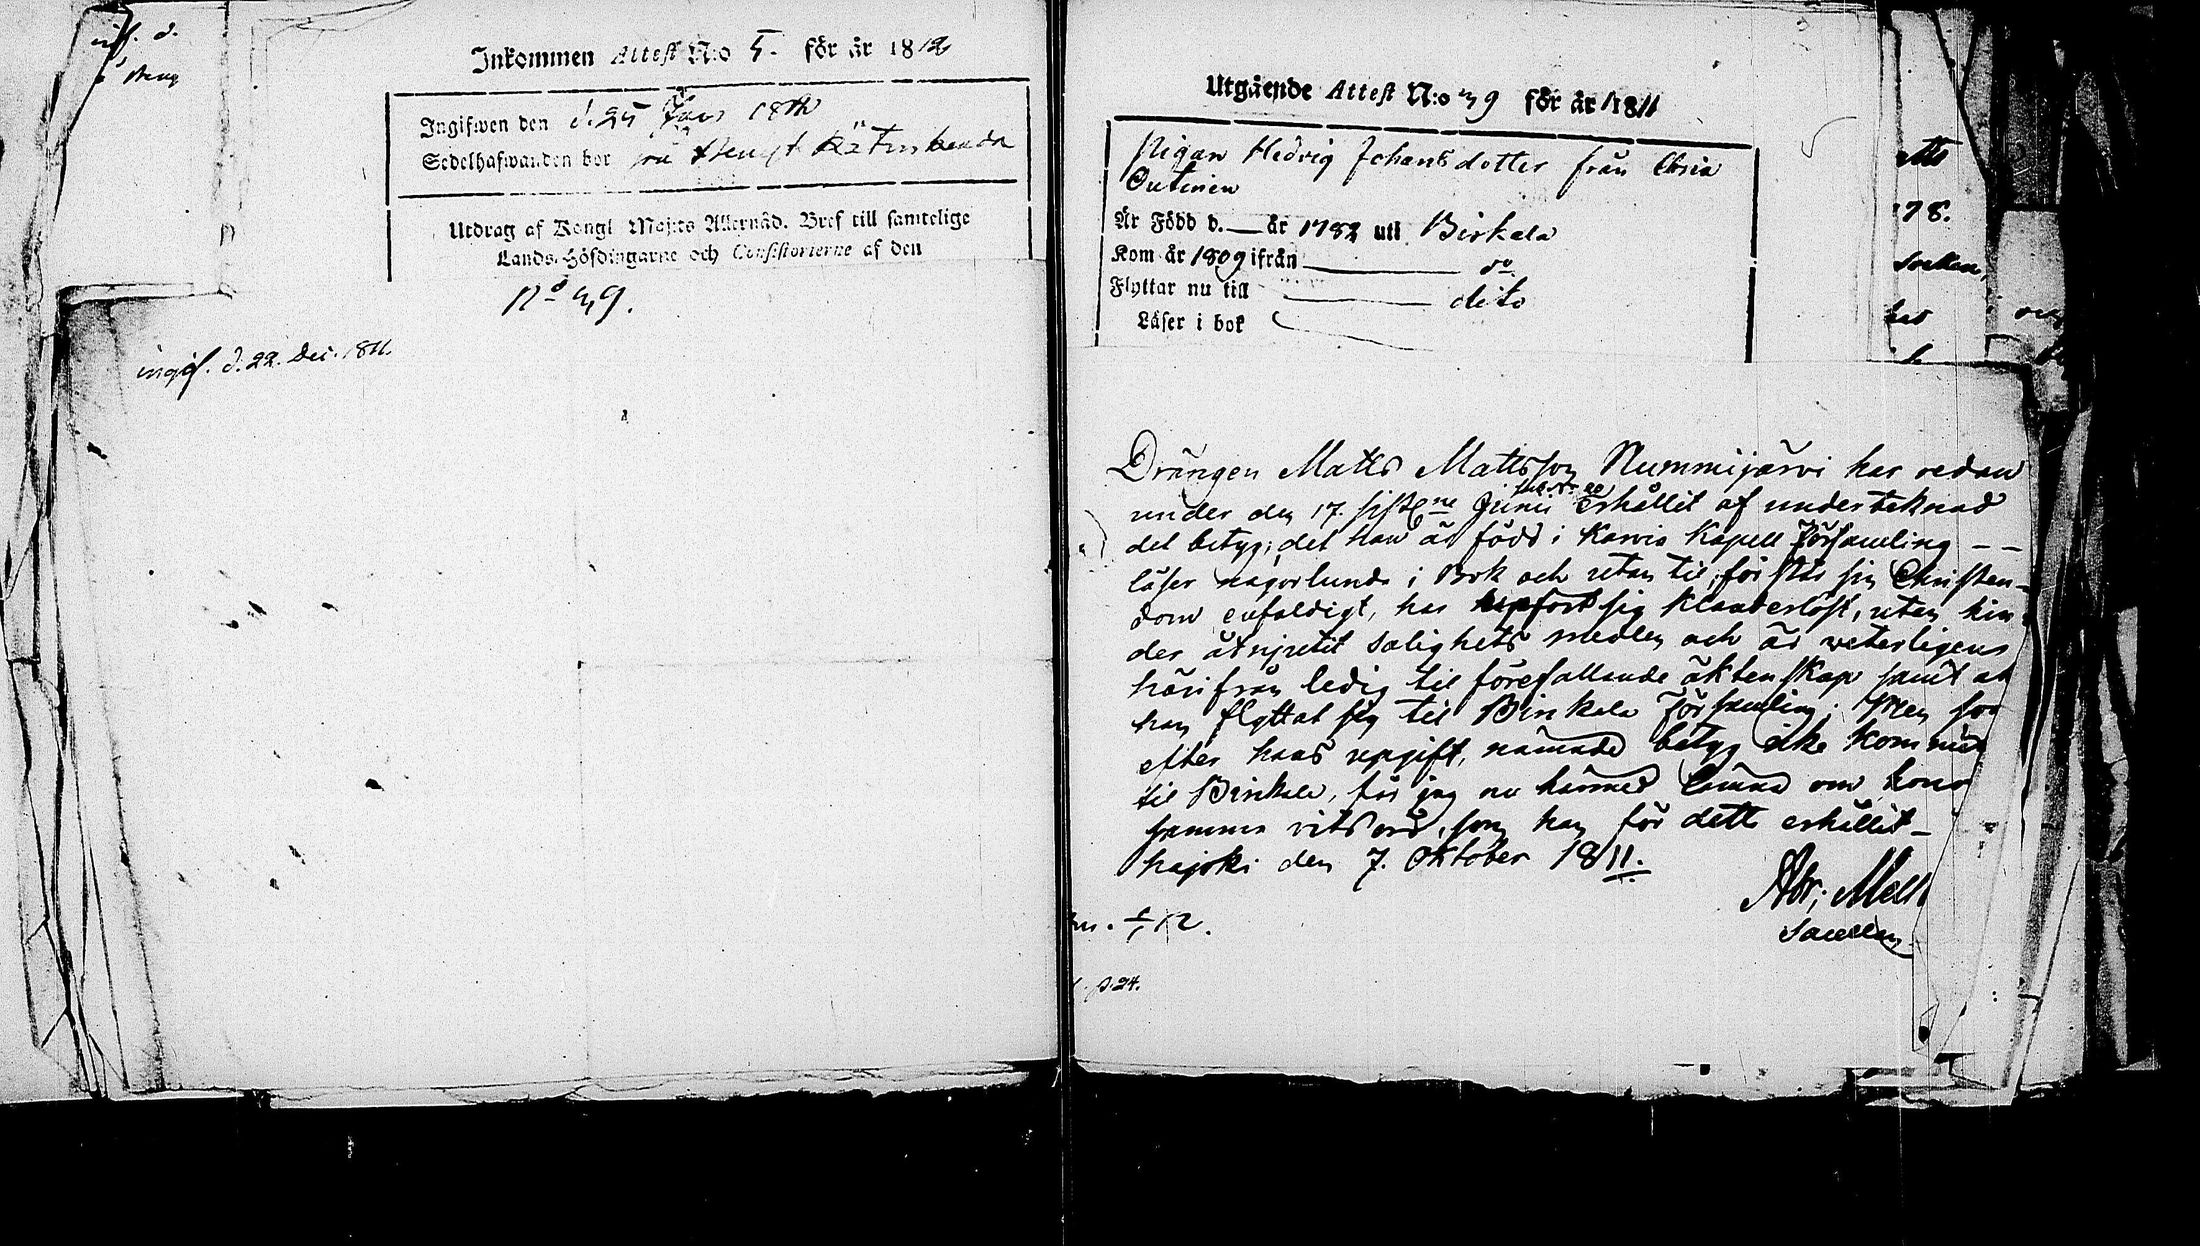 ingif. d.
Inkommen Attest N:o 5. för år 1812
Ingifwen den d. 25 Janr 1812
Sedelhafwanden bor på Bengt
Utdrag af Kongl Maj:ts Allernåd. Bref till samtelige
Lands-Höfdingarne och Consistorierne af den
No 39.
ingif. d. 22. Dec. 1811.
Utgående Attest N:o 39 för år 1811
Pigan Hedvig Johansdotter från
Outinen
Är Född d. — år 1782 uti Birkala
Kom år 1809 ifrån — do
Flyttar nu till — dito
Läser i bok
78.
Drängen Matts Mattsson Nummijärvi har redan
under den 17. sistl:ne Junii erhållit af undertecknad
det betyg; det han är född i Karvia Kapell Församling - -
läser någorlunda i Bok och utan til, förstår sin Christen-
dom enfaldigt, har upfört sig klanderlöst, utan hin-
der åtnjutit salighets medlen och är veterligen
härifrån ledig til förefallande äktenskap samt at
han flyttat sig til Birkala Församling; Men som
efter hans upgift, nämnde betyg icke kommit
til Birkala, får jag nu härmed lämna om honom
samma vitsord, som han för detta erhållit –
den 7. Oktober 1811.
Abr; Mell
Sacellan
p. 24.